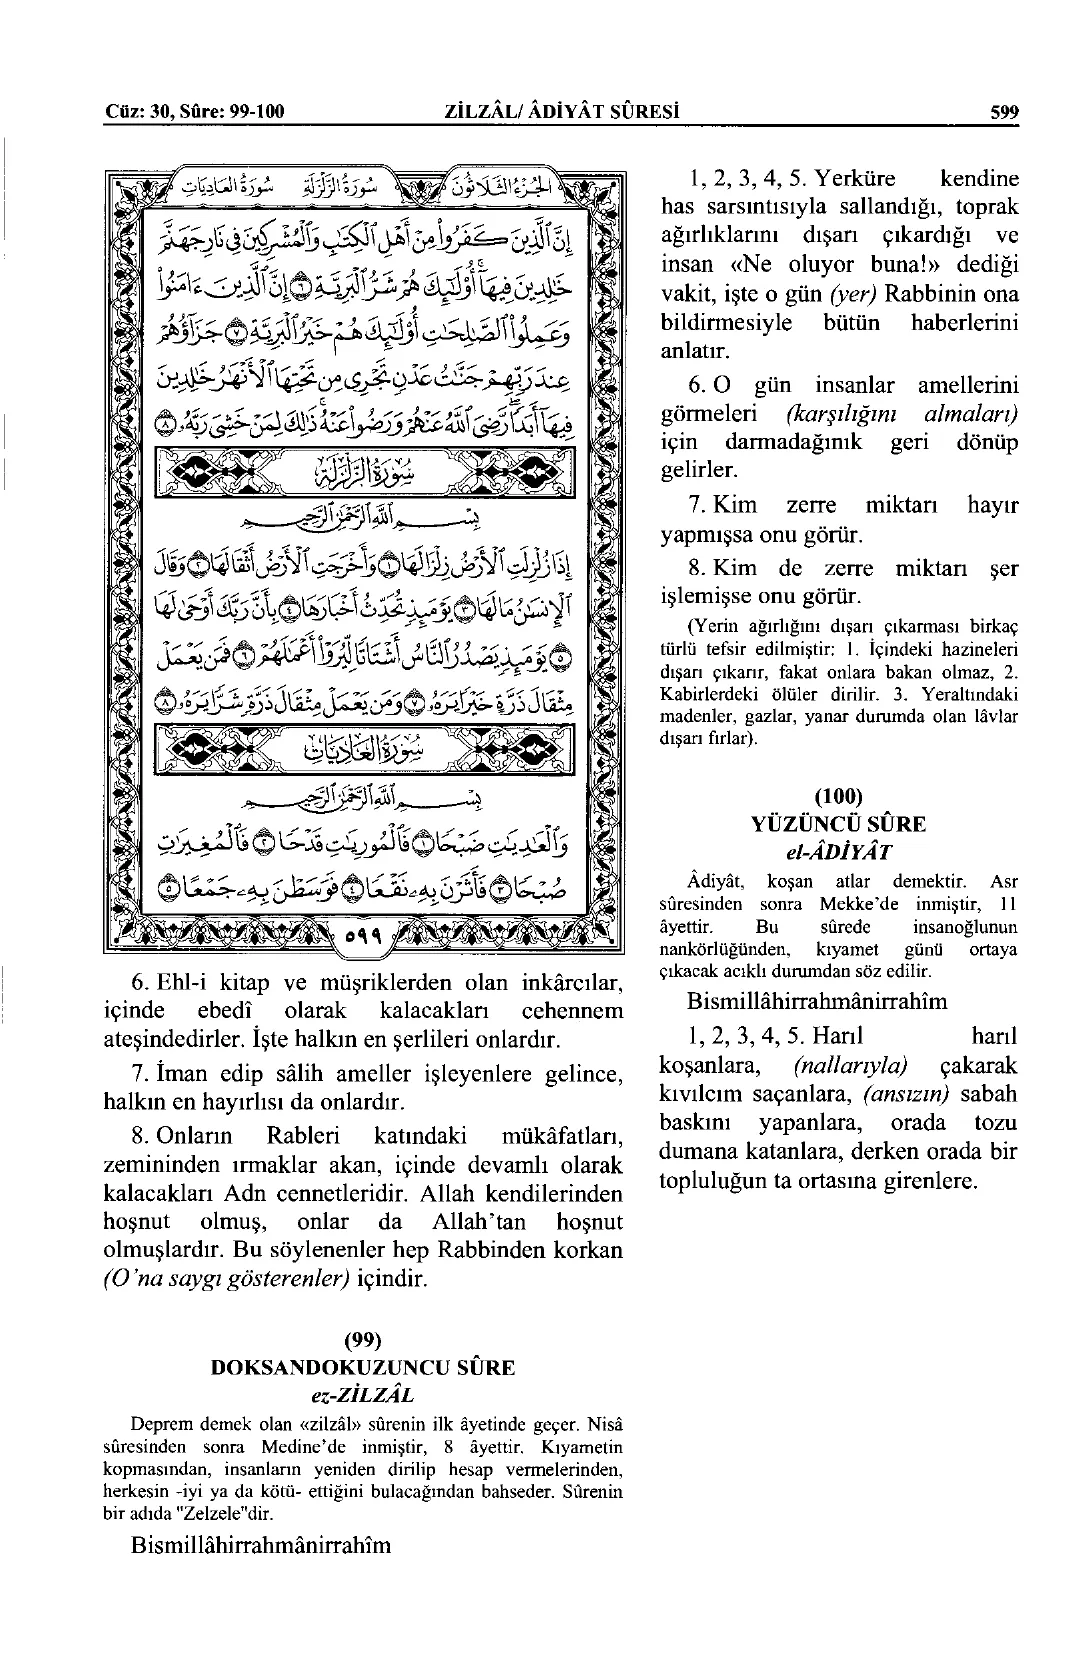 Cüz: 30, Sûre: 99-100 ZİLZÂL/ ÂDİYÂT SÛRESİ 599
الجزء الثلاثون سورة الزلزلة سورة العاديات
إِنَّ ٱلَّذِينَ كَفَرُوا۟ مِنْ أَهْلِ ٱلْكِتَٰبِ وَٱلْمُشْرِكِينَ فِى نَارِ جَهَنَّمَ
خَٰلِدِينَ فِيهَآ أُو۟لَٰٓئِكَ هُمْ شَرُّ ٱلْبَرِيَّةِ ٦ إِنَّ ٱلَّذِينَ ءَامَنُوا۟
وَعَمِلُوا۟ ٱلصَّٰلِحَٰتِ أُو۟لَٰٓئِكَ هُمْ خَيْرُ ٱلْبَرِيَّةِ ٧ جَزَآؤُهُمْ
عِندَ رَبِّهِمْ جَنَّٰتُ عَدْنٍ تَجْرِى مِن تَحْتِهَا ٱلْأَنْهَٰرُ خَٰلِدِينَ
فِيهَآ أَبَدًا رَّضِىَ ٱللَّهُ عَنْهُمْ وَرَضُوا۟ عَنْهُ ذَٰلِكَ لِمَنْ خَشِىَ رَبَّهُۥ ٨
سورة الزلزلة
بِسْمِ ٱللَّهِ ٱلرَّحْمَٰنِ ٱلرَّحِيمِ
إِذَا زُلْزِلَتِ ٱلْأَرْضُ زِلْزَالَهَا ١ وَأَخْرَجَتِ ٱلْأَرْضُ أَثْقَالَهَا ٢ وَقَالَ
ٱلْإِنسَٰنُ مَا لَهَا ٣ يَوْمَئِذٍ تُحَدِّثُ أَخْبَارَهَا ٤ بِأَنَّ رَبَّكَ أَوْحَىٰ لَهَا
٥ يَوْمَئِذٍ يَصْدُرُ ٱلنَّاسُ أَشْتَاتًا لِّيُرَوْا۟ أَعْمَٰلَهُمْ ٦ فَمَن يَعْمَلْ
مِثْقَالَ ذَرَّةٍ خَيْرًا يَرَهُۥ ٧ وَمَن يَعْمَلْ مِثْقَالَ ذَرَّةٍ شَرًّا يَرَهُۥ ٨
سورة العاديات
بِسْمِ ٱللَّهِ ٱلرَّحْمَٰنِ ٱلرَّحِيمِ
وَٱلْعَٰدِيَٰتِ ضَبْحًا ١ فَٱلْمُورِيَٰتِ قَدْحًا ٢ فَٱلْمُغِيرَٰتِ
صُبْحًا ٣ فَأَثَرْنَ بِهِۦ نَقْعًا ٤ فَوَسَطْنَ بِهِۦ جَمْعًا ٥
٥٩٩
6. Ehl-i kitap ve müşriklerden olan inkârcılar,
içinde ebedî olarak kalacakları cehennem
ateşindedirler. İşte halkın en şerlileri onlardır.
7. İman edip sâlih ameller işleyenlere gelince,
halkın en hayırlısı da onlardır.
8. Onların Rableri katındaki mükâfatları,
zemininden ırmaklar akan, içinde devamlı olarak
kalacakları Adn cennetleridir. Allah kendilerinden
hoşnut olmuş, onlar da Allah'tan hoşnut
olmuşlardır. Bu söylenenler hep Rabbinden korkan
(O'na saygı gösterenler) içindir.
(99)
DOKSANDOKUZUNCU SÛRE
ez-ZİLZÂL
Deprem demek olan «zilzâl» sûrenin ilk âyetinde geçer. Nisâ
sûresinden sonra Medine'de inmiştir, 8 âyettir. Kıyametin
kopmasından, insanların yeniden dirilip hesap vermelerinden,
herkesin -iyi ya da kötü- ettiğini bulacağından bahseder. Sûrenin
bir adıda "Zelzele"dir.
Bismillâhirrahmânirrahîm
1, 2, 3, 4, 5. Yerküre kendine
has sarsıntısıyla sallandığı, toprak
ağırlıklarını dışarı çıkardığı ve
insan «Ne oluyor buna!» dediği
vakit, işte o gün (yer) Rabbinin ona
bildirmesiyle bütün haberlerini
anlatır.
6. O gün insanlar amellerini
görmeleri (karşılığını almaları)
için darmadağınık geri dönüp
gelirler.
7. Kim zerre miktarı hayır
yapmışsa onu görür.
8. Kim de zerre miktarı şer
işlemişse onu görür.
(Yerin ağırlığını dışarı çıkarması birkaç
türlü tefsir edilmiştir: 1. İçindeki hazineleri
dışarı çıkarır, fakat onlara bakan olmaz, 2.
Kabirlerdeki ölüler dirilir. 3. Yeraltındaki
madenler, gazlar, yanar durumda olan lâvlar
dışarı fırlar).
(100)
YÜZÜNCÜ SÛRE
el-ÂDİYÂT
Âdiyât, koşan atlar demektir. Asr
sûresinden sonra Mekke'de inmiştir, 11
âyettir. Bu sûrede insanoğlunun
nankörlüğünden, kıyamet günü ortaya
çıkacak acıklı durumdan söz edilir.
Bismillâhirrahmânirrahîm
1, 2, 3, 4, 5. Harıl harıl
koşanlara, (nallarıyla) çakarak
kıvılcım saçanlara, (ansızın) sabah
baskını yapanlara, orada tozu
dumana katanlara, derken orada bir
topluluğun ta ortasına girenlere.